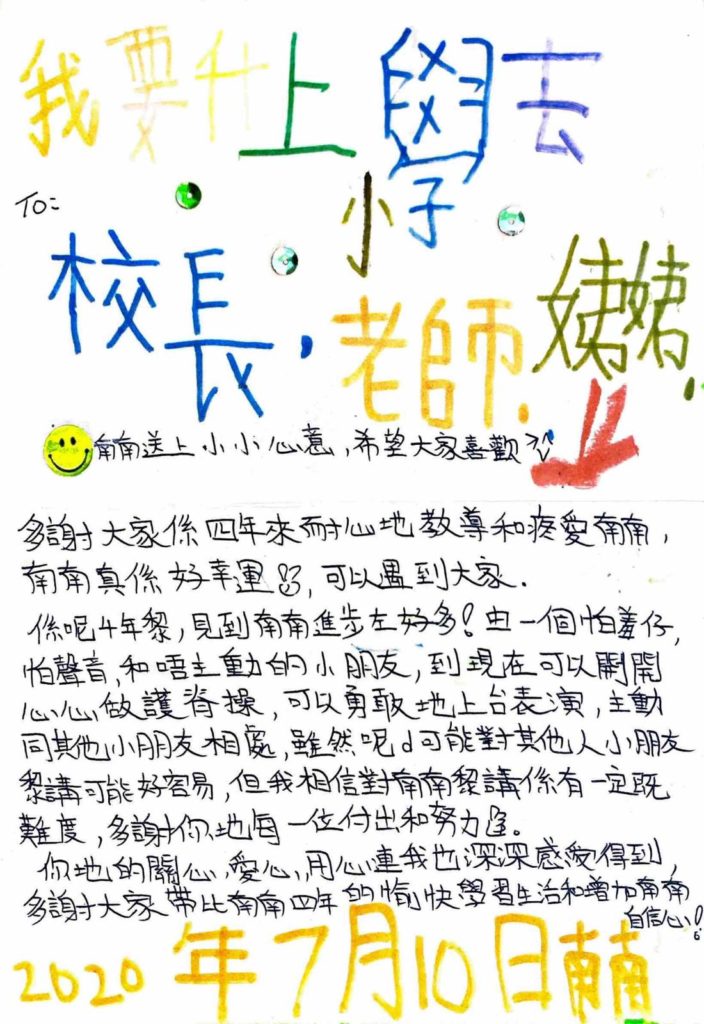 我要升上小學去
TO:
校長，老師，姨姨，
喃喃送上小小心意，希望大家喜歡
多謝大家係四年來耐心地教導和疼愛喃喃，
喃喃真係好幸運，可以遇到大家．
係呢4年黎，見到喃喃進步左好多！由一個怕羞仔，
怕聲音，和唔主動的小朋友，到現在可以開開
心心做護脊操，可以勇敢地上台表演，主動
同其他小朋友相處，雖然呢d可能對其他人小朋友
黎講可能好容易，但我相信對喃喃黎講係有一定既
難度，多謝你地每一位付出和努力。
你地的關心，愛心，用心連我也深深感受得到，
多謝大家帶比喃喃四年的愉快學習生活和增加喃喃
自信心！
2020年7月10日喃喃